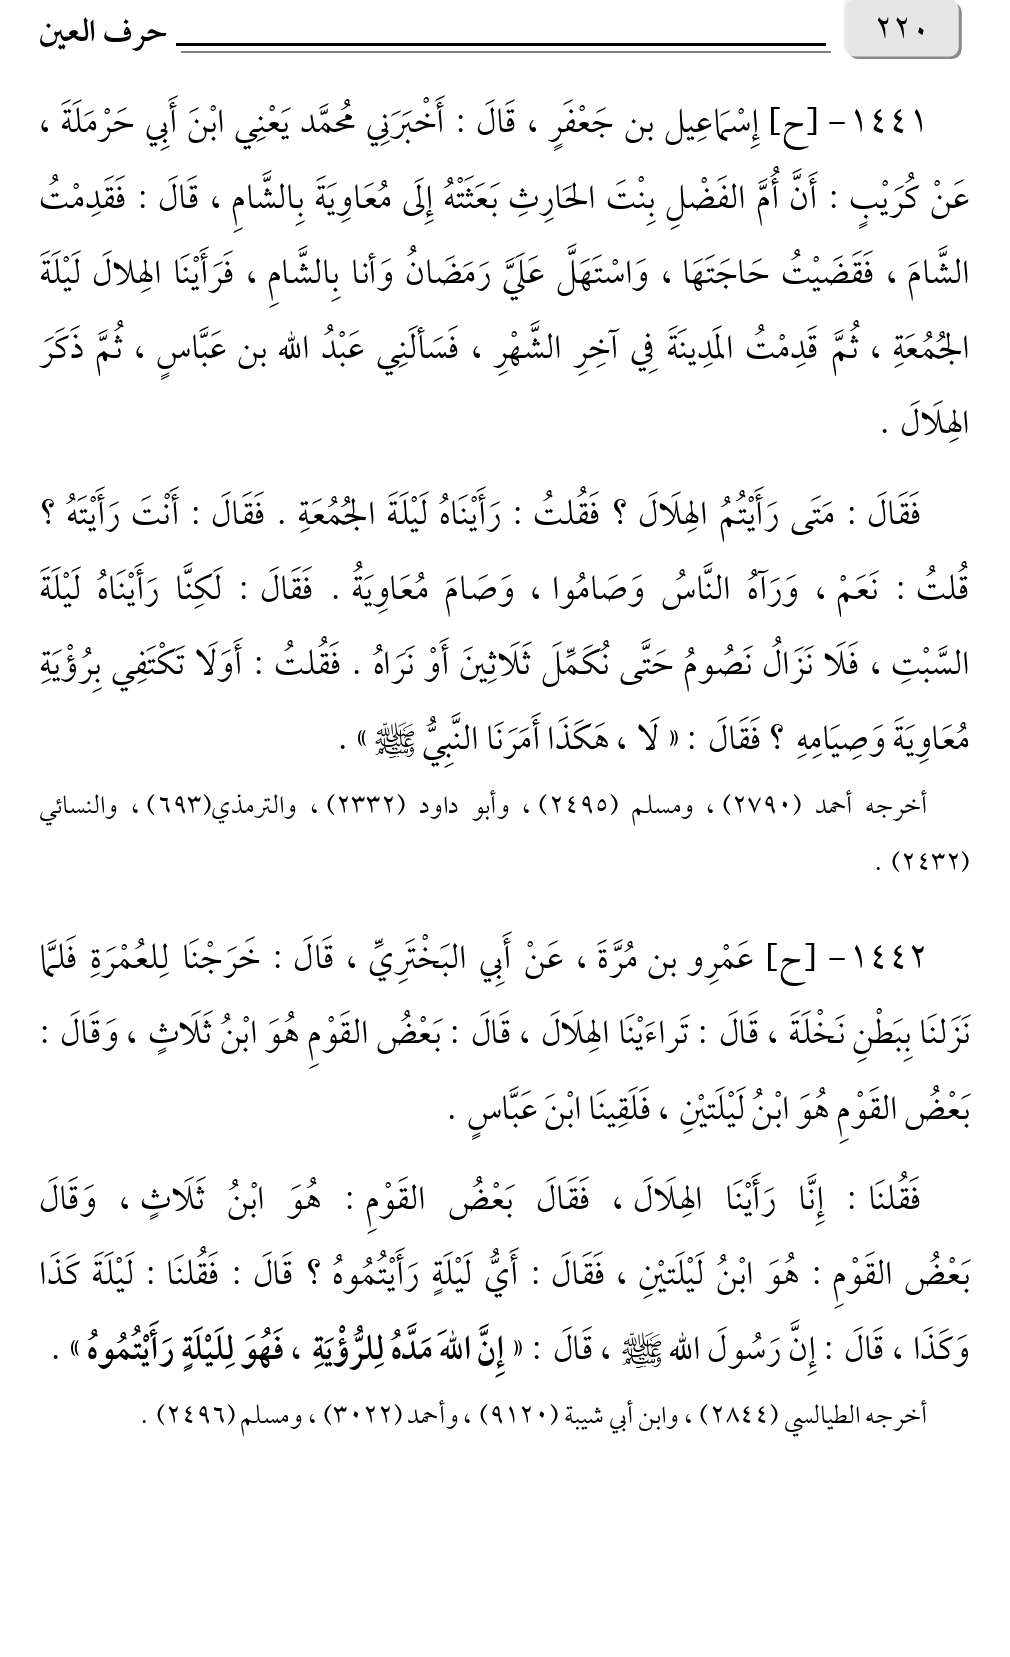 ٢٢٠
حرف العين
١٤٤١- [ح] إِسْمَاعِيل بن جَعْفَرٍ ، قَالَ : أَخْبَرَنِي مُحمَّد يَعْنِي ابْنَ أَبِي حَرْمَلَةَ ،
عَنْ كُرَيْبٍ : أَنَّ أُمَّ الفَضْلِ بِنْتَ الحَارِثِ بَعَثَتْهُ إِلَى مُعَاوِيَةَ بِالشَّامِ ، قَالَ : فَقَدِمْتُ
الشَّامَ ، فَقَضَيْتُ حَاجَتَهَا ، وَاسْتَهَلَّ عَلَيَّ رَمَضَانُ وَأنا بِالشَّامِ ، فَرَأَيْنَا الهِلالَ لَيْلَةَ
الجُمُعَةِ ، ثُمَّ قَدِمْتُ المَدِينَةَ فِي آخِرِ الشَّهْرِ ، فَسَألَنِي عَبْدُ الله بن عَبَّاسٍ ، ثُمَّ ذَكَرَ
الهِلَالَ .
فَقَالَ : مَتَى رَأَيْتُمُ الهِلَالَ ؟ فَقُلتُ : رَأَيْنَاهُ لَيْلَةَ الجُمُعَةِ . فَقَالَ : أَنْتَ رَأَيْتَهُ ؟
قُلتُ : نَعَمْ ، وَرَآهُ النَّاسُ وَصَامُوا ، وَصَامَ مُعَاوِيَةُ . فَقَالَ : لَكِنَّا رَأَيْنَاهُ لَيْلَةَ
السَّبْتِ ، فَلَا نَزَالُ نَصُومُ حَتَّى نُكَمِّلَ ثَلَاثِينَ أَوْ نَرَاهُ . فَقُلتُ : أَوَلَا تَكْتَفِي بِرُؤْيَةِ
مُعَاوِيَةَ وَصِيَامِهِ ؟ فَقَالَ : « لَا ، هَكَذَا أَمَرَنَا النَّبِيُّ ﷺ » .
أخرجه أحمد (٢٧٩٠) ، ومسلم (٢٤٩٥) ، وأبو داود (٢٣٣٢) ، والترمذي(٦٩٣) ، والنسائي
(٢٤٣٢) .
١٤٤٢- [ح] عَمْرِو بن مُرَّةَ ، عَنْ أَبِي البَخْتَرِيِّ ، قَالَ : خَرَجْنَا لِلعُمْرَةِ فَلمَّا
نَزَلنَا بِبَطْنِ نَخْلَةَ ، قَالَ : تَراءَيْنَا الهِلَالَ ، قَالَ : بَعْضُ القَوْمِ هُوَ ابْنُ ثَلَاثٍ ، وَقَالَ :
بَعْضُ القَوْمِ هُوَ ابْنُ لَيْلَتيْنِ ، فَلَقِينَا ابْنَ عَبَّاسٍ .
فَقُلنَا : إِنَّا رَأَيْنَا الهِلَالَ ، فَقَالَ بَعْضُ القَوْمِ : هُوَ ابْنُ ثَلَاثٍ ، وَقَالَ
بَعْضُ القَوْمِ : هُوَ ابْنُ لَيْلَتيْنِ ، فَقَالَ : أَيُّ لَيْلَةٍ رَأَيْتُمُوهُ ؟ قَالَ : فَقُلنَا : لَيْلَةَ كَذَا
وَكَذَا ، قَالَ : إِنَّ رَسُولَ الله ﷺ ، قَالَ : « إِنَّ اللهَ مَدَّهُ لِلرُّؤْيَةِ ، فَهُوَ لِلَيْلَةٍ رَأَيْتُمُوهُ » .
أخرجه الطيالسي (٢٨٤٤) ، وابن أبي شيبة (٩١٢٠) ، وأحمد (٣٠٢٢) ، ومسلم (٢٤٩٦) .